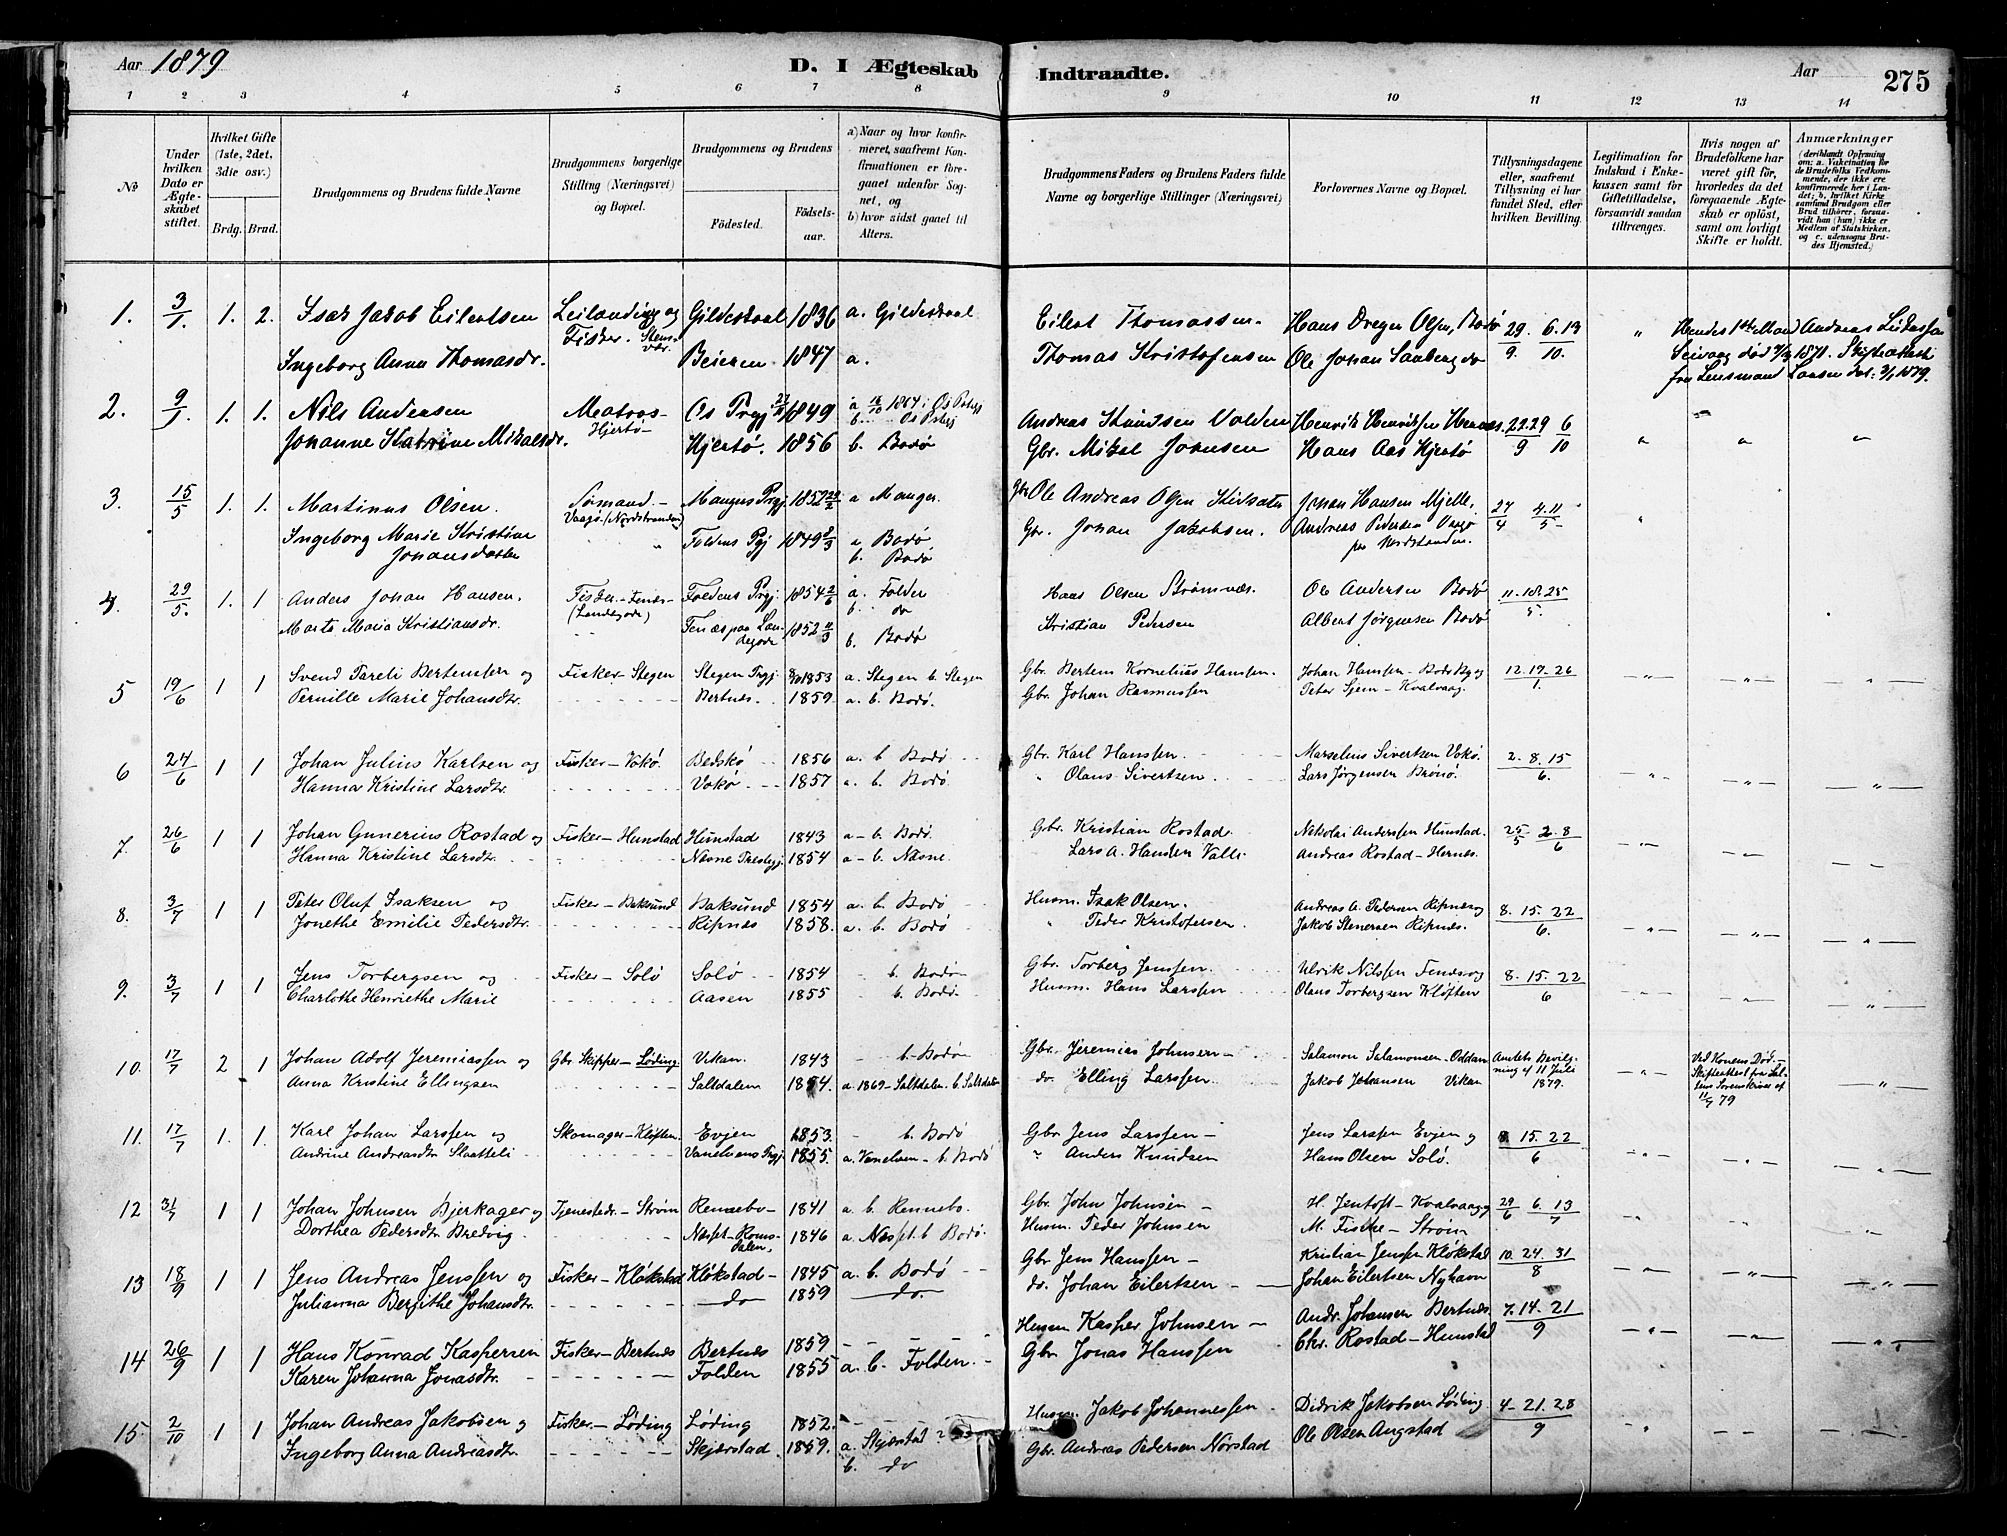 Aar 1879
D. I Ægteskab Indtraadte.
Aar
275
1 2 3 4 5 6 7 8 9 10 11 12 13 14
No
Under hvilken Dato er Ægteskabet stiftet.
Hvilket Gifte (1ste, 2det, 3die osv.)
Brdg. Brud.
Brudgommens og Brudens fulde Navne
Brudgommens borgerlige Stilling (Næringsvei) og Bopæl.
Brudgommens og Brudens
Fødested.
Fødselsaar.
a) Naar og hvor konfirmeret, saafremt Konfirmationen er foregaaet udenfor Sognet, og
b) hvor sidst gaaet til Alters.
Brudgommens Faders og Brudens Faders fulde Navne og borgerlige Stillinger (Næringsvei)
Forlovernes Navne og Bopæl.
Tillysningsdagene eller, saafremt Tillysning ei har fundet Sted, efter hvilken Bevilling.
Legitimation for Indskud i Enkekassen samt for Giftetilladelse, forsaavidt saadan tiltrænges.
Hvis nogen af Brudefolkene har været gift før, hvorledes da det foregaaende Ægteskab er opløst, samt om lovligt Skifte er holdt.
Anmærkninger
(deriblandt Oplysning om: a. Vakcination for de Brudefolks Vedkommende, der ikke ere konfirmerede her i Landet; b. hvilket Kirkesamfund Brudgom eller Brud tilhører, forsaavidt han (hun) ikke er Medlem af Statskirken, og c. udensogns Brudes Hjemsted.)
1. 3/1. 1. 2. Isak Jakob Eilertsen Leilænding og Gildeskaal 1836 a. Gildeskaal Eilert Thomassen. Hans Dreyer Olsen, Bodø 29. 6. 13 " Hendes 1ste Mand Andreas
Fisker.
Ingeborg Anna Thomasdr. Beieren 1847 a. Thomas Kristofensen Ole Johan do 9. 10. død 1871. Skifteattest
fra Lensmand 1879.
2. 9/1. 1. 1. Nils Andersen Matros Os Prgj. 1849 a 1864 i Os b. Os Andreas Knudsen Volden Henrik Henriksen 22. 29 6
Hjertø
Johanne Katrine Mikalsdr. Hjertø. 1856 b. Bodø Gbr. Mikal Johnsen Hans Aas Hjertø 9 10 " " "
3. 15/5 1. 1. Martinus Olsen. Sømand Mangers Prgj 1852 a Manger. Gbr Ole Andreas Olsen Johan Hansen Mjelle, 27 4. 11
Vaagø (Nordstranden)
Ingeborg Marie Kristine Foldens Pgj 1849 a Bodø Gbr. Johan Jakobsen. Andreas Pedersen Vaagø 4 5 "
Johansdatter b. Bodø paa Nordstranden.
4. 29/5. 1. 1 Anders Johan Hansen. Fisker Fenes Foldens Prgj. 1854 2/6 a. Folden Hans Olsen Strømnæs. Ole Andersen Bodø 11. 18. 25
(Landegode) b. do 5.
Marta Maria Kristiansdr. Fenæs paa Landegode 1852 b. Bodø Kristian Pedersen Albert Jørgensen Bodø
5 19/6 1 1 Svend Tareli Bertensen og Fisker Stegen Stegen Prgj. 1853 a. Stegen b. Stegen Gbr. Bertem Kornelius Hanssen. Johan Hanssen 12. 19. 26
Pernille Marie Johansdtr. Bertnes. 1859 a. b. Bodø. Gbr. Johan Rasmussen Peter - Kvalvaag 1. " " "
6 24/6 1 1 Johan Julius Karlsen og Fisker Vokø. Bedskø 1856 a. b Bodø Gbr. Karl Hanssen. Marselius Sivertsen Vokø 2. 8. 15
Hanna Kristine Larsdtr. Vokø 1857 a. b. Bodø " Olaus Sivertsen Lars Jørgensen Brønø. 6. " " "
7. 26/6 1 1 Johan Gunerius Rostad og Fisker - Hunstad Hunstad 1843 a - b. Bodø. Gbr. Kristian Rostad. Nikolai Anderssen Hunstad. 25/5 2. 8
Hanna Kristine Larsdtr. Nesne Presgj. 1854 a - b. Nesne. Lars A. Hansen Valle Andreas Rostad - Hernes. 6
8. 3/7 1 1 Peter Oluf Isaksen og Fisker - Baksund Baksund 1854 a. b. Bodø Husm. Isak Olsen. Andreas A. Pedersen Ripnes og 8. 15. 22
Jonethe Emilie Pedersdtr. Ripnes 1858. a. b. Bodø " Peder Kristofersen. Jakob Stenersen Ripnes. 6. " " "
9. 3/7 1 1 Jens Torbergsen og Fisker - Solø Solø 1854 - b. Bodø Gbr. Torberg Jenssen. Ulrik Nilssen Fenes og 8. 15. 22
Charlothe Henriethe Marie Aasen 1855 b. Bodø Husm. Hans Larssen Olaus Torbergsen Kløften 6
10. 17/7 2 1 Johan Adolf Jeremiassen og Gbr Skipper - Løding Vikan. 1843 - b. Bodø Gbr. Jeremias Johnsen - Salamon Salamonsen. Oddan Amtets Bevilgning af 11 Juli 1879. " Ved Konens Død. - Skifteattest fra Saltens Sorenskriver af 11/7 79
Anna Kristine Ellingsen Saltdalen 1854. a. 1869 - Saltdalen. b. Saltdalen do. Elling Larssen Jakob Johansen Vikan
11. 17/7 1. 1. Karl Johan Larssen og Skomager - Kløften. Evjen 1853. - b. Bodø Gbr Jens Larssen - Jens Larssen Evjen og 15. 22
Andrine Andreasdtr Slaatteli Vanelvens Prgj 1855. a. Vanelven - b. Bodø " Anders Knudsen Hans Olsen Solø. 6 " " "
12 31/7 1 1 Johan Johnsen Bjerkager og Tjenestedr - Strøm Rennebo - 1841 a. b. Rennebo. Gbr. John Johnsen - H. Jentoft - Kvalvaag og 29/6 6. 13
Dorthea Pedersdtr Bredvig. Nesset - Romsdalen. 1846 a. Nesset. b Bodø. Husm. Peder Johnsen M. Fische - Strøm 7
13 18/9 1 1 Jens Andreas Jenssen og Fisker - Kløkstad Kløkstad - 1845 a. b. Bodø Gbr. Jens Hanssen - Kristian Jenssen Kløkstad 10. 24. 31
Julianna Bergithe Johansdtr. do 1859 do. do. Johan Eilertsen Johan Eilertsen Nyhavn 8 " " "
14 26/9 1 1 Hans Konrad Kaspersen Fisker - Bertnes Bertnes 1859 - Husm Kasper Johnsen - Andr. Johansen Bertnes. 7. 14. 21
Karen Johanna Jonasdtr. Folden 1855 a. b. Folden. Gbr. Jonas Hanssen Chr. Rostad - Hunstad 9 " " "
15. 2/10 1 1 Johan Andreas Jakobsen og Fisker - Løding Løding 1852. Husm. Jakob Johannessen Didrik Jakobsen Løding 4 - 21. 28
Ingeborg Anna Andreasdtr Skjærstad 1859. a. Skjærstad Gbr. Andreas Pedersen Norstad Ole Olsen Angstad 9 "
b. do